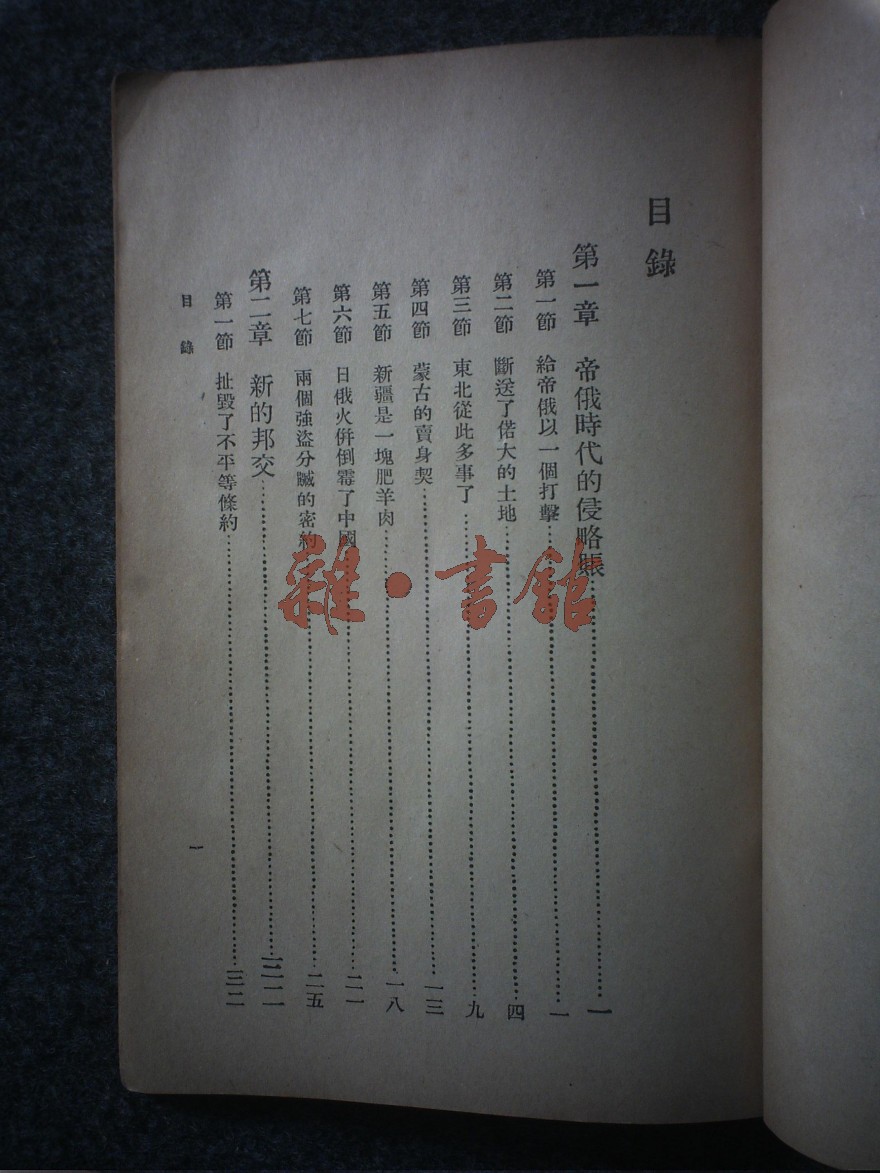 目錄
第一章 帝俄時代的侵略賬……一
第一節 給帝俄以一個打擊……一
第二節 斷送了偌大的土地……四
第三節 東北從此多事了……九
第四節 蒙古的賣身契……一三
第五節 新疆是一塊肥羊肉……一八
第六節 日俄火併倒霉了中國……二一
第七節 兩個強盜分贓的密約……二五
第二章 新的邦交……三二
第一節 扯毀了不平等條約……三二
目錄 一
雜·書館